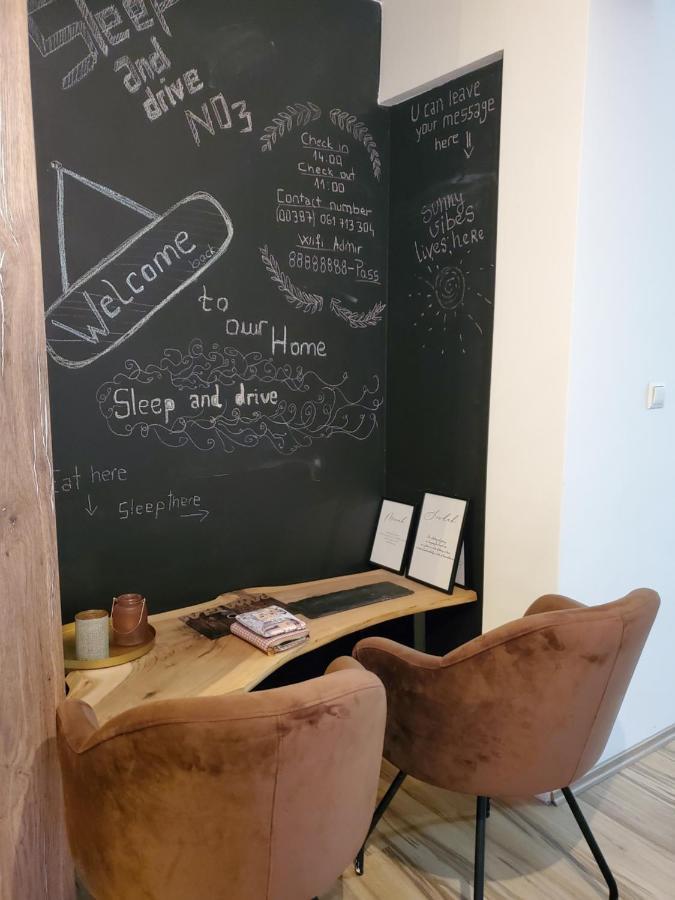 Sleep
and
drive
NO3
Check in
14:00
Check out
11:00
Contact number
(00387) 061 713 304
Wifi Admir
88888888-Pass
Welcome
back
to
our
Home
Sleep and drive
Eat here
Sleep there
U can leave
your message
here
sunny
vibes
lives here